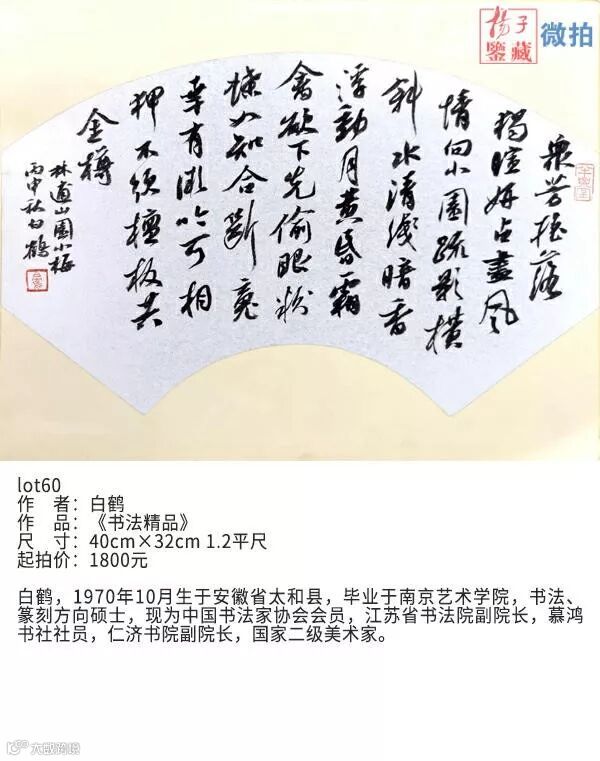 楊子
鑒藏
微拍
衆芳摇落
獨暄妍占盡風
情向小園疏影橫
斜水清淺暗香
浮動月黄昏霜
禽欲下先偷眼粉
蝶如知合斷魂
幸有微吟可相
狎不須檀板共
金樽
林逋山園小梅
丙申秋白鶴
lot60
作 者：白鹤
作 品：《书法精品》
尺 寸：40cm×32cm 1.2平尺
起拍价：1800元
白鹤，1970年10月生于安徽省太和县，毕业于南京艺术学院，书法、
篆刻方向硕士，现为中国书法家协会会员，江苏省书法院副院长，慕鸿
书社社员，仁济书院副院长，国家二级美术家。
大数跨境